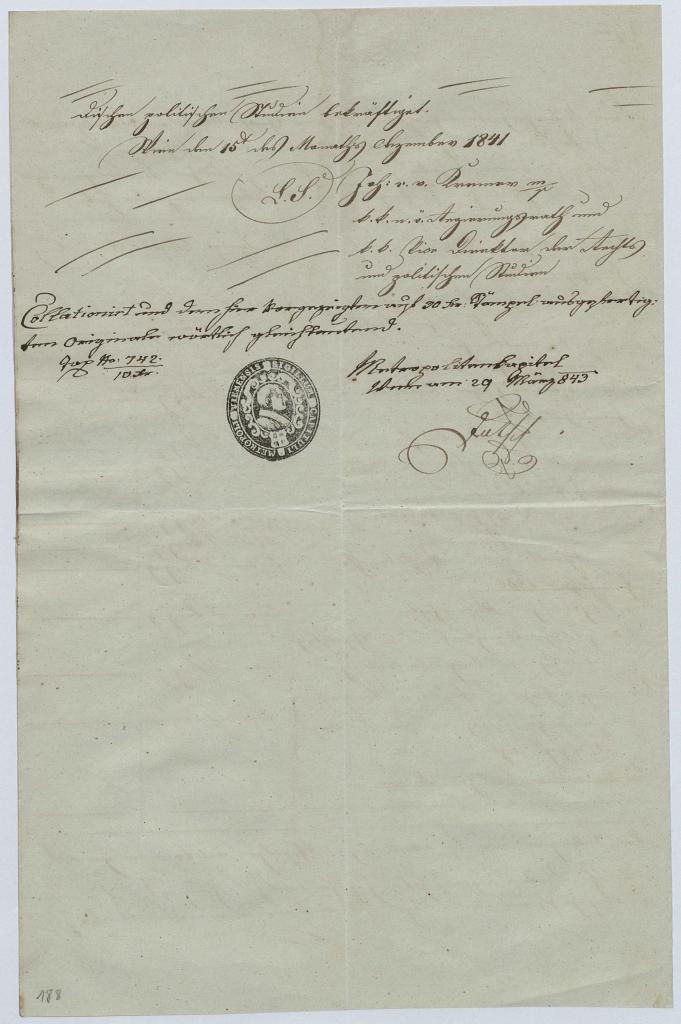 dischen politischen Studien bekräftiget.
Wien den 15t des Monaths Dezember 1841
L. S. Joh: v. v. Kremer m/p
k. k. n. ö. Regierungsrath und
k. k. Vice Direktor der Rechts
und politischen Studien
Collationirt und dem hier vorgezeigten auf 30 Kr: Stämpel ausgefertig-
ten Originale wörtlich gleichlautend.
Tax No: 742.
10 Kr.
METROPOLI VIENENSIS CAPITULI
Metropolitankapitel
Wien am 29 März 843
188